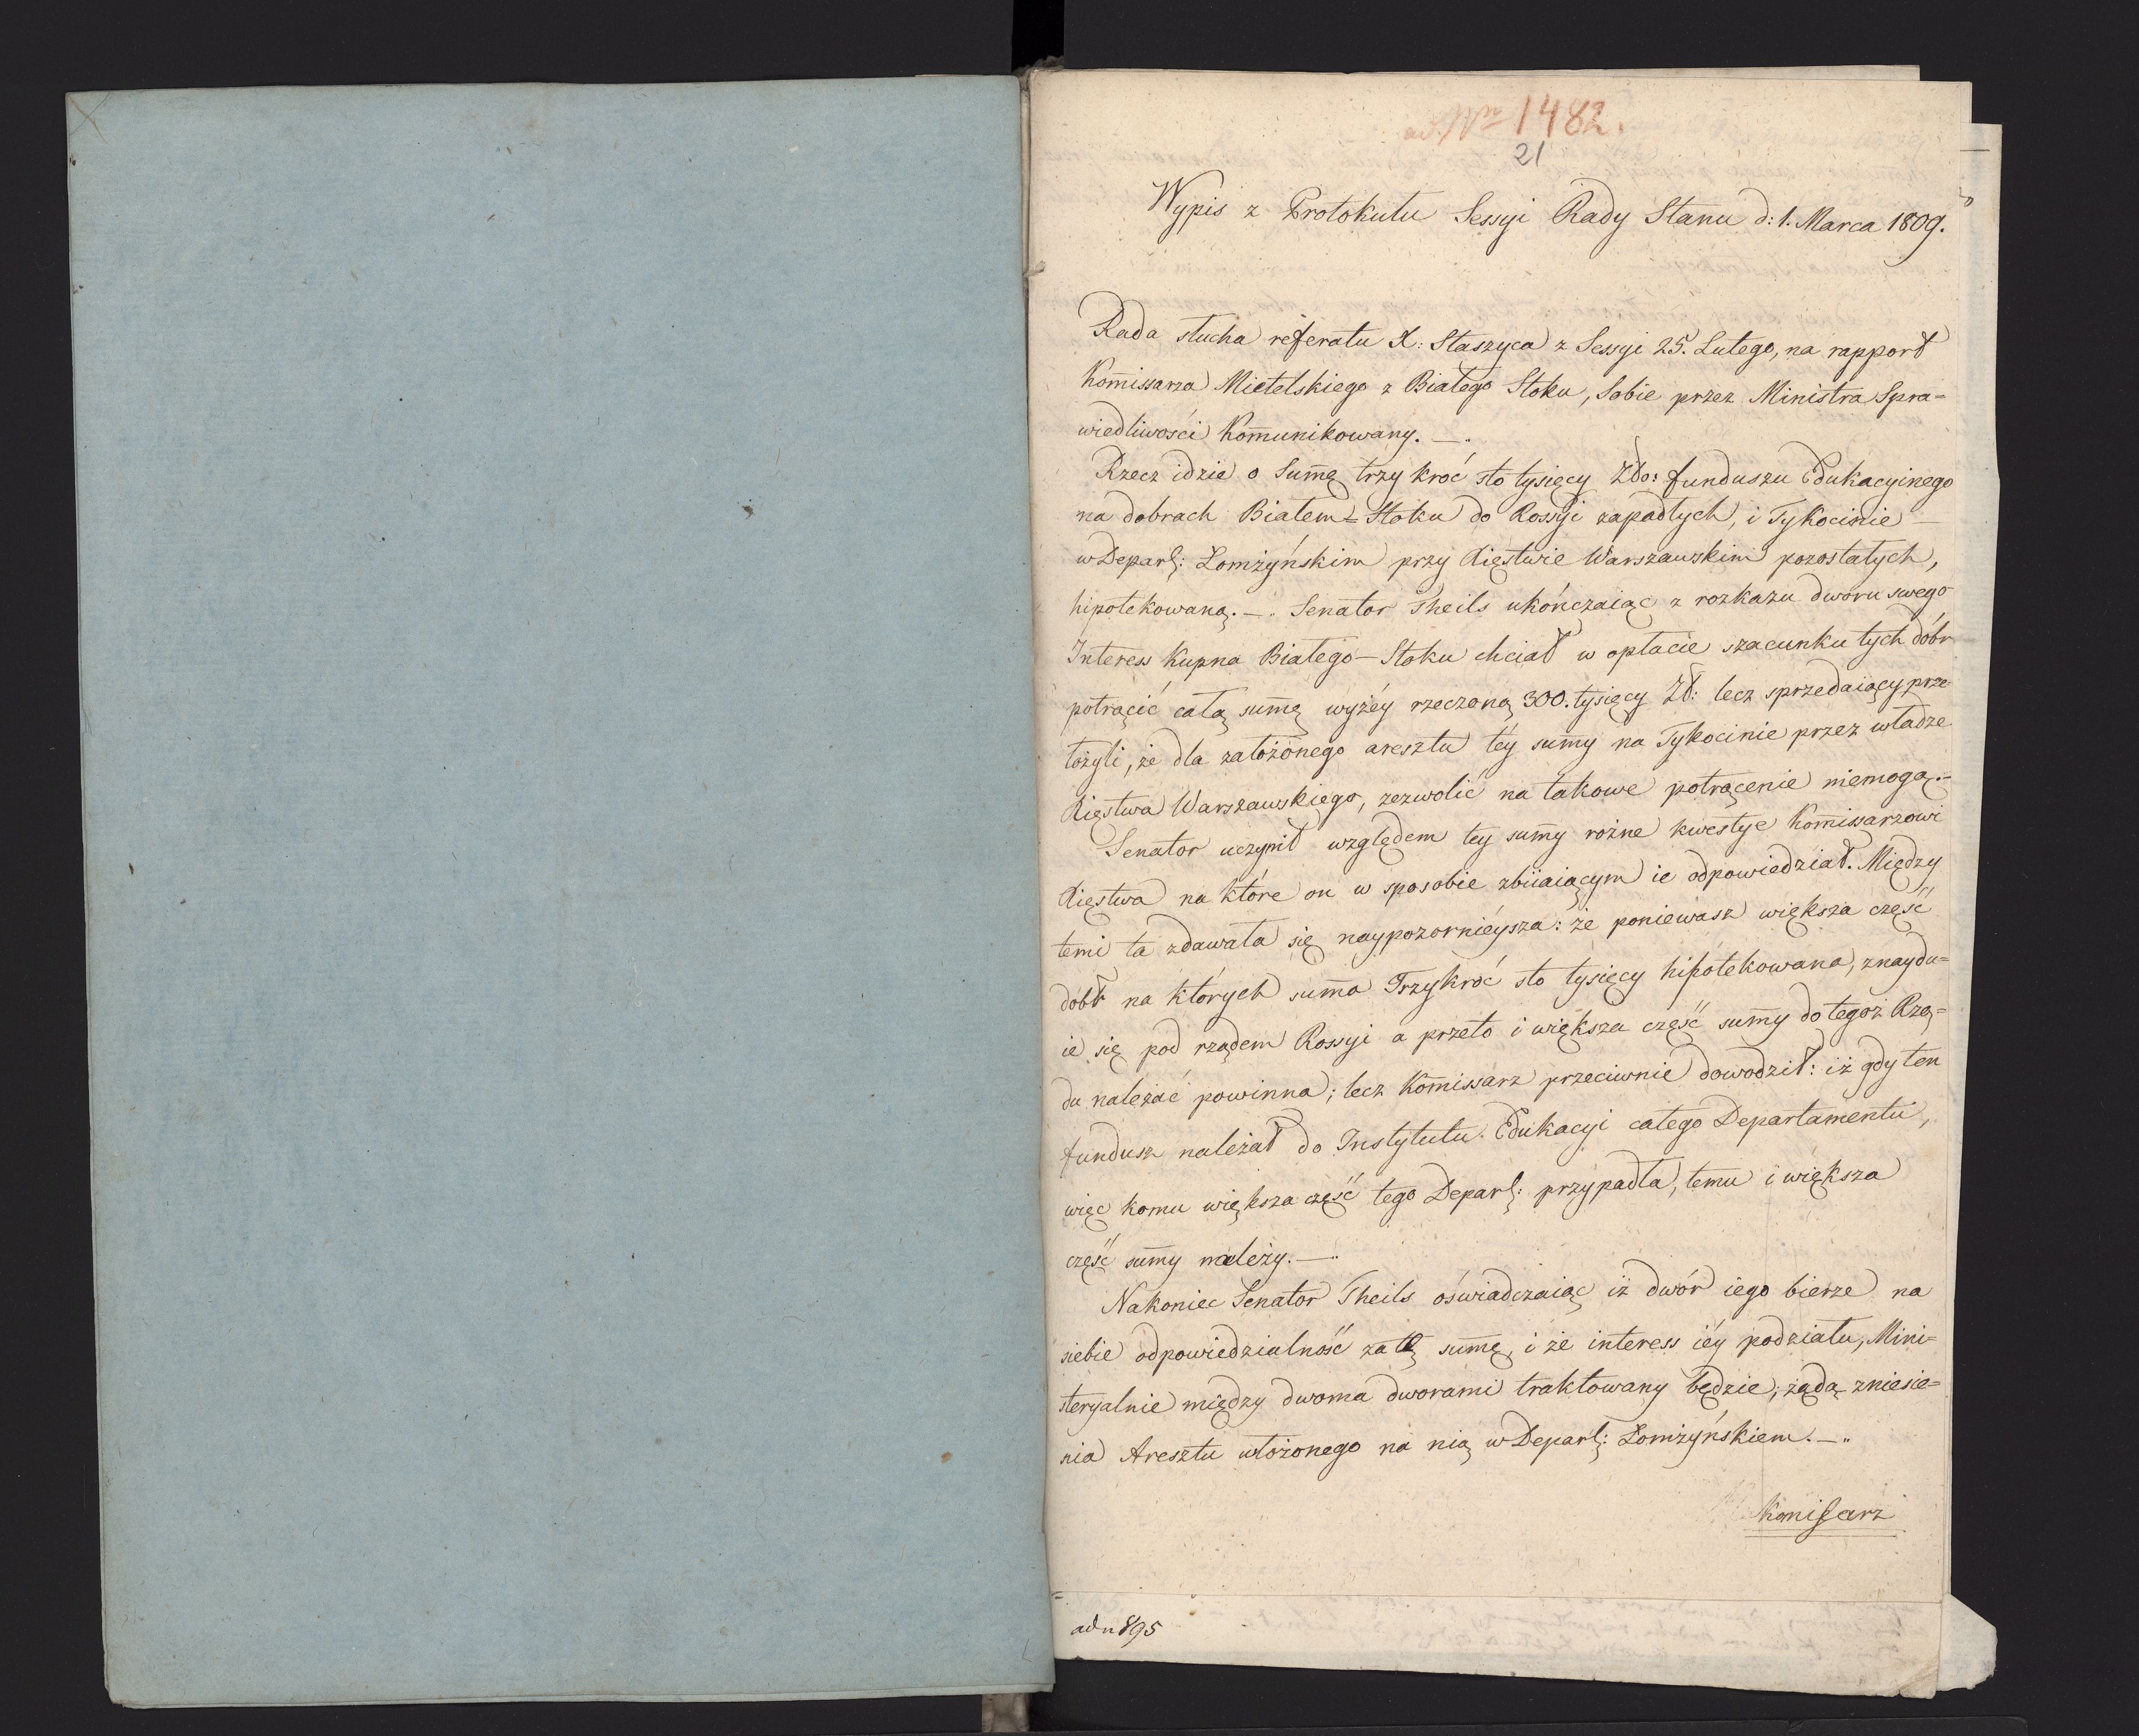 ad Nro 1482.
21
Wypis z Protokułu Sessyi Rady Stanu d: 1. Marca 1809.
Rada słucha referatu X: Staszyca z Sessyi 25. Lutego, na rapport
Kom̄issarza Mietelskiego z Białego Stoku, Sobie przez Ministra Spra=
wiedliwości Kom̄unikowany. —.
Rzecz idzie o Sum̄ę trzy kroć sto tysięcy Zło: funduszu Edukacyinego
na dobrach Białem=Stoku do Rossyi zapadłych, i Tykocinie —
w Depart: Łomżyńskim przy Xięstwie Warszawskim pozostałych,
hipotekowaną. —. Senator Theils ukończaiąc z rozkazu dworu swego
Interess Kupna Białego—Stoku chciał w opłacie szacunku tych dóbr
potrącić całą sum̄ę wyżéy rzeczoną 300. tysięcy Zł: lecz sprzedaiący prze=
łożyli, że dla założonego aresztu téy sum̄y na Tykocinie przez władze
Xięstwa Warszawskiego, zezwolić na takowe potrącenie niemogą.—
Senator uczynił względem tey sum̄y rożne kwestye Kom̄issarzowi
Xięstwa na które on w sposobie zbiiaiącym ie odpowiedział. Między
temi ta zdawała się naypozornieysza: że poniewasz większa część
dóbr na których sum̄a Trzykroć sto tysięcy hipotekowana, znaydu=
ie się pod rządem Rossyi a przeto i większa część sum̄y do tegoż Rzą=
du należać powinna; lecz Kom̄issarz przeciwnie dowodził: iż gdy ten
fundusz należał do Instytutu Edukacyi całego Departamentu,
więc komu większa część tego Depart: przypadła, temu i większa
część sum̄y należy. —.
Nakoniec Senator Theils oświadczaiąc iż dwór iego bierze na
siebie odpowiedzialność za tę sum̄ę, i że interess iéy podziału, Mini=
steryalnie między dwoma dworami traktowany będzie, żąda zniesie=
nia Aresztu włożonego na nią w Depart: Łomżyńskiem. —..
Komissarz
ad n 895